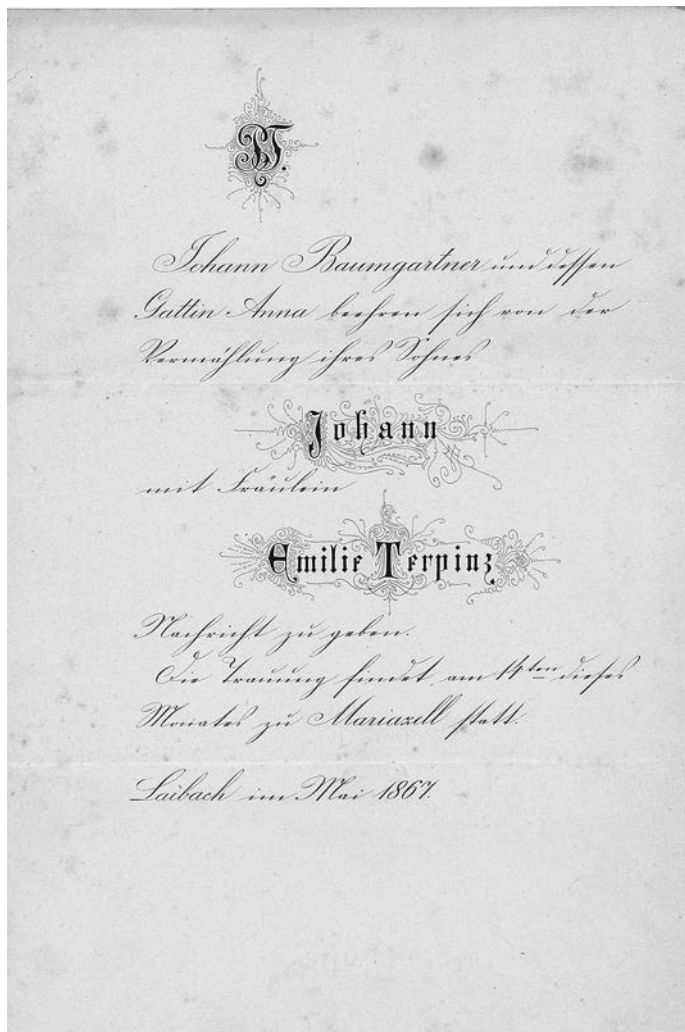 Johann Baumgartner und dessen
Gattin Anna beehren sich von der
Vermählung ihres Sohnes
Johann
mit Fräulein
Emilie Terpinz
Nachricht zu geben.
Die Trauung findet am 14ten dieses
Monates zu Mariazell statt.
Laibach im Mai 1867.